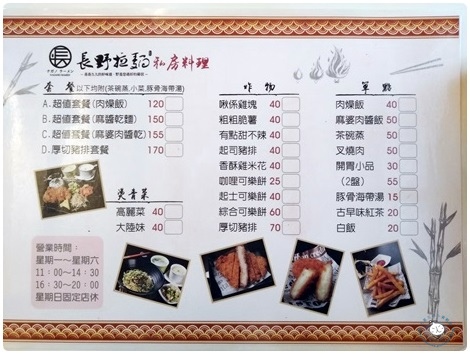 長
ナガノ ラーメン
長野拉麵 私房料理
套餐 以下均附(茶碗蒸,小菜,豚骨海帶湯)
A.超值套餐(肉燥飯) 120
B.超值套餐(麻醬乾麵) 150
C.超值套餐(麻婆肉醬乾) 155
D.厚切豬排套餐 170
燙青菜
高麗菜 40
大陸妹 40
營業時間:
星期一~星期六
11:00~14:30
16:30~20:00
星期日固定店休
炸物
啾係雞塊 40
粗粗脆薯 40
有點甜不辣 40
起司豬排 40
香酥雞米花 40
咖哩可樂餅 25
起士可樂餅 40
綜合可樂餅 60
厚切豬排 70
單點
肉燥飯 40
麻婆肉醬飯 50
茶碗蒸 40
叉燒肉 50
開胃小品 30
(2盤) 55
豚骨海帶湯 15
古早味紅茶 20
白飯 20